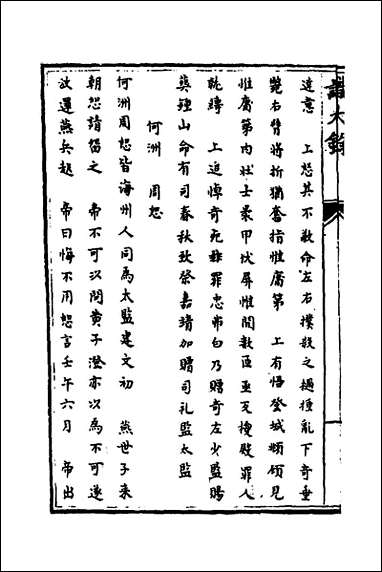 違意　上怒其不敬命左右撲殺之撾捶亂下奇垂
斃右臂將折猶奮指惟庸第　上有悟登城見
惟庸第内壯士裹甲伏屏惟間數匝亟反椶殿罪人
就縛　上追悼奇死罪忠弗白乃贈奇左少監賜
塟鍾山命有司春秋致祭嘉靖加贈司礼監太監
何洲　周恕
何洲周恕皆海州人同為太監建文初　燕世子来
朝恕請留之　帝不可以問黄子澄亦以為不可遂
放還燕兵起　帝曰悔不用恕言壬午六月　帝出